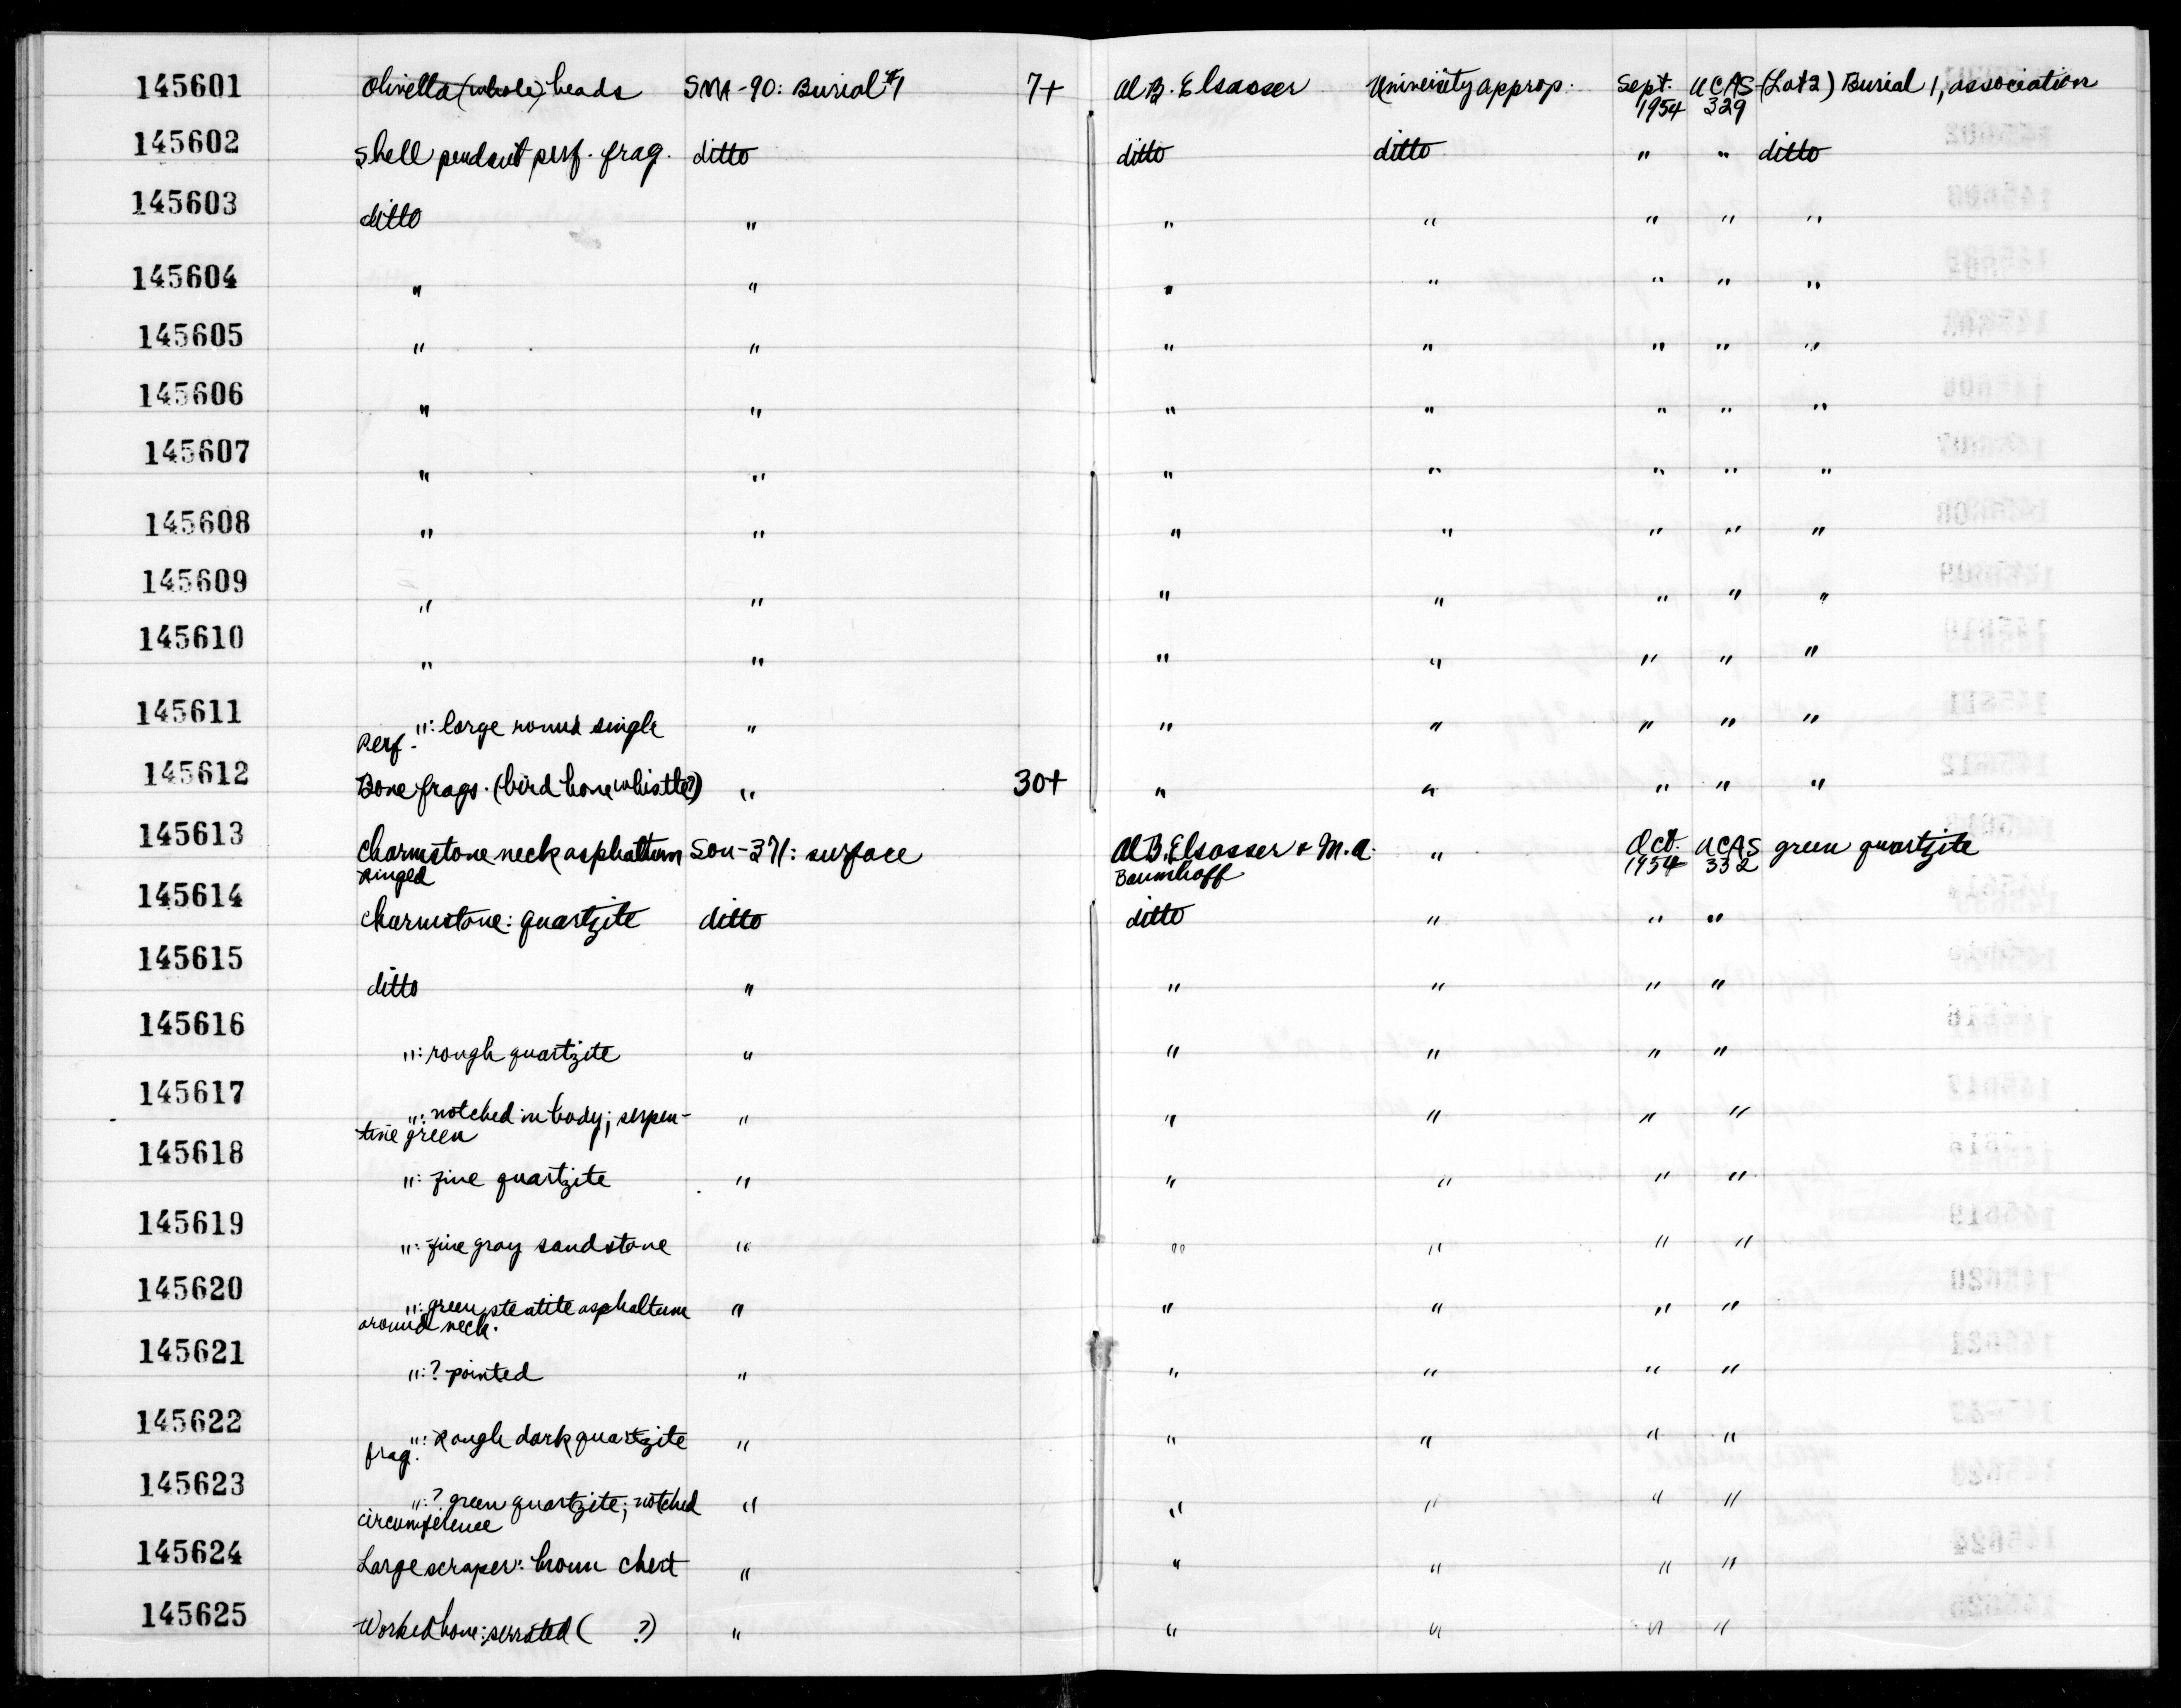 145601 Olivella (whole) beads SMA-90: Burial #1 7+ Al B. Elsasser University approp. Sept. 1954 UCAS 329 (Lot 2) Burial 1, association
145602 Shell pendant perf. frag. ditto ditto ditto " " ditto
145603 ditto " " " " " "
145604 " " " " " " "
145605 " " " " " " "
145606 " " " " " " "
145607 " " " " " " "
145608 " " " " " " "
145609 " " " " " " "
145610 " " " " " " "
145611 ": large round single " " " " " "
Perf.
145612 Bone frags. (bird bone whistle?) " 30+ " " " " "
145613 Charmstone neck asphaltum Son-371: surface Al B. Elsasser + M.A. " Oct. UCAS green quartzite
ringed Baumhoff 1954 332
145614 Charmstone: quartzite ditto ditto " " "
145615 ditto " " " " "
145616 ": rough quartzite " " " " "
145617 ": notched in body; serpen- " " " " "
tine green
145618 ": fine quartzite " " " " "
145619 ": fine gray sandstone " " " " "
145620 ": green steatite asphaltum " " " " "
around neck.
145621 ": ? pointed " " " " "
145622 ": Rough dark quartzite " " " " "
frag.
145623 ": ? green quartzite; notched " " " " "
circumference
145624 Large scraper: brown chert " " " " "
145625 Worked bone: serrated ( ?) " " " " "